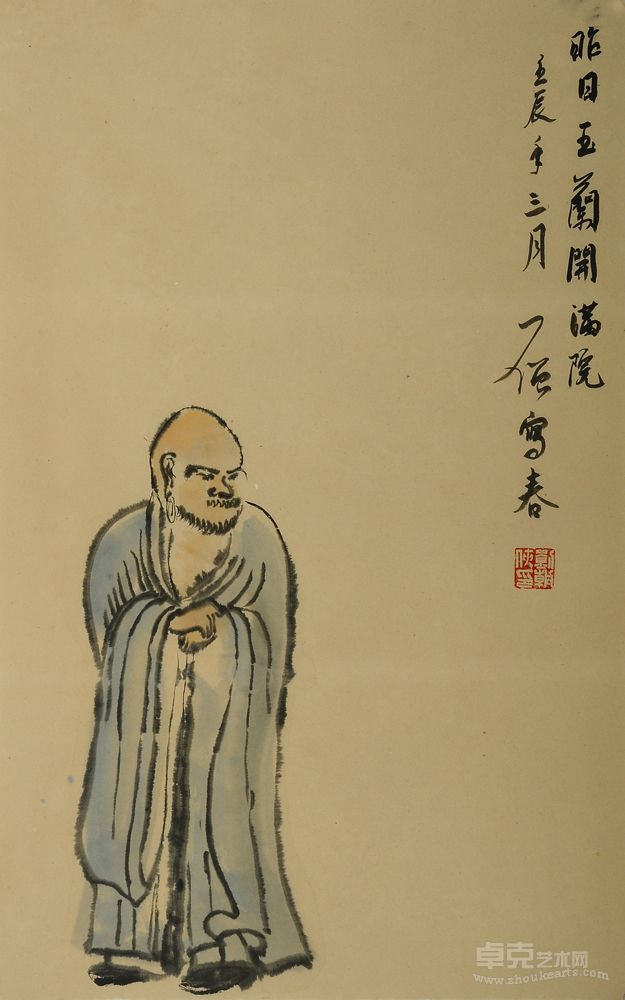 昨日玉蘭開滿院
壬辰年三月 一僧寫春
卓克艺术网
www.zhoukearts.com